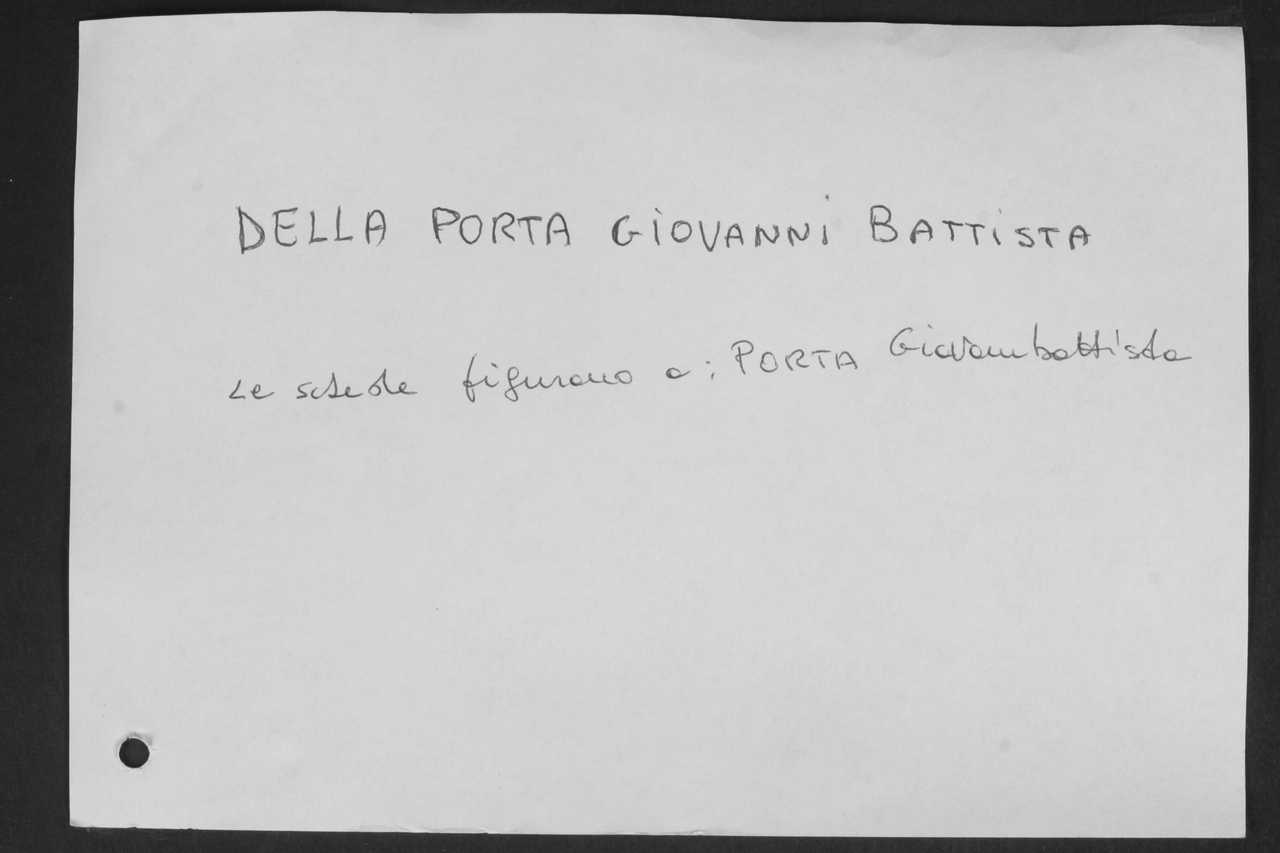 DELLA PORTA GIOVANNI BATTISTA
Le schede figurano a: PORTA Giovambattista